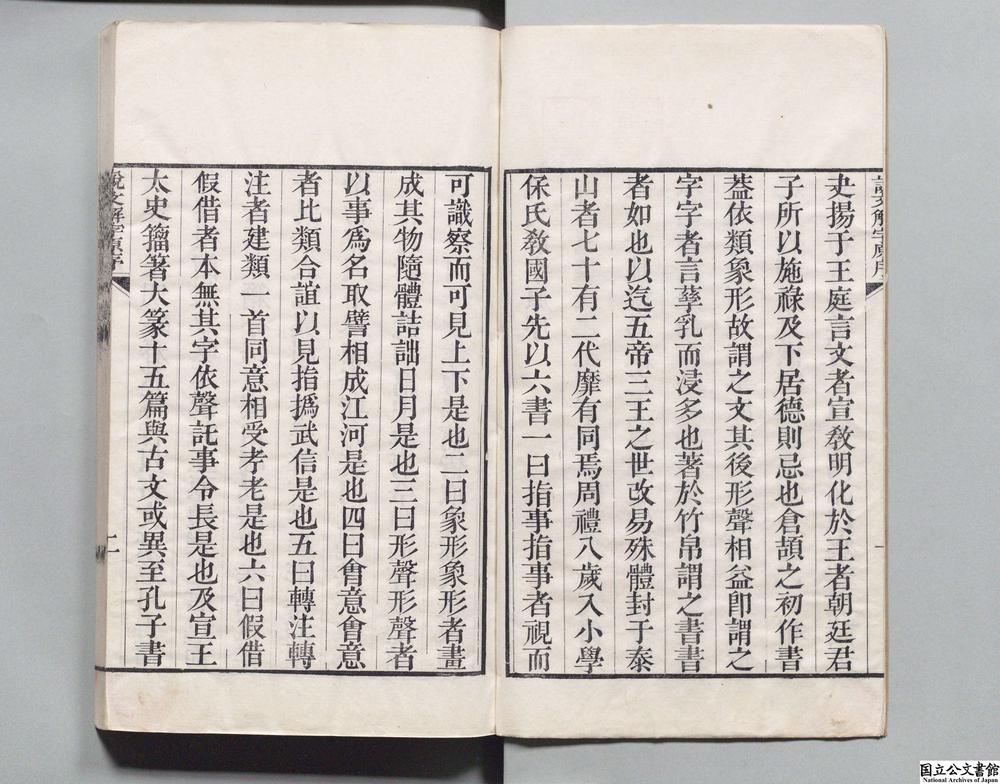 說文解字原序
一
夬揚于王庭言文者宣敎明化於王者朝廷君
子所以施祿及下居德則忌也倉頡之初作書
葢依類象形故謂之文其後形聲相益卽謂之
字字者言孳乳而浸多也著於竹帛謂之書書
者如也以迄五帝三王之世改易殊體封于泰
山者七十有二代靡有同焉周禮八歲入小學
保氏敎國子先以六書一曰指事指事者視而
可識察而可見上下是也二曰象形象形者畫
成其物隨體詰詘日月是也三曰形聲形聲者
以事爲名取譬相成江河是也四曰會意會意
者比類合誼以見指撝武信是也五曰轉注轉
注者建類一首同意相受考老是也六曰假借
假借者本無其字依聲託事令長是也及宣王
太史籒著大篆十五篇與古文或異至孔子書
說文解字原序
二
国立公文書館
National Archives of Japan